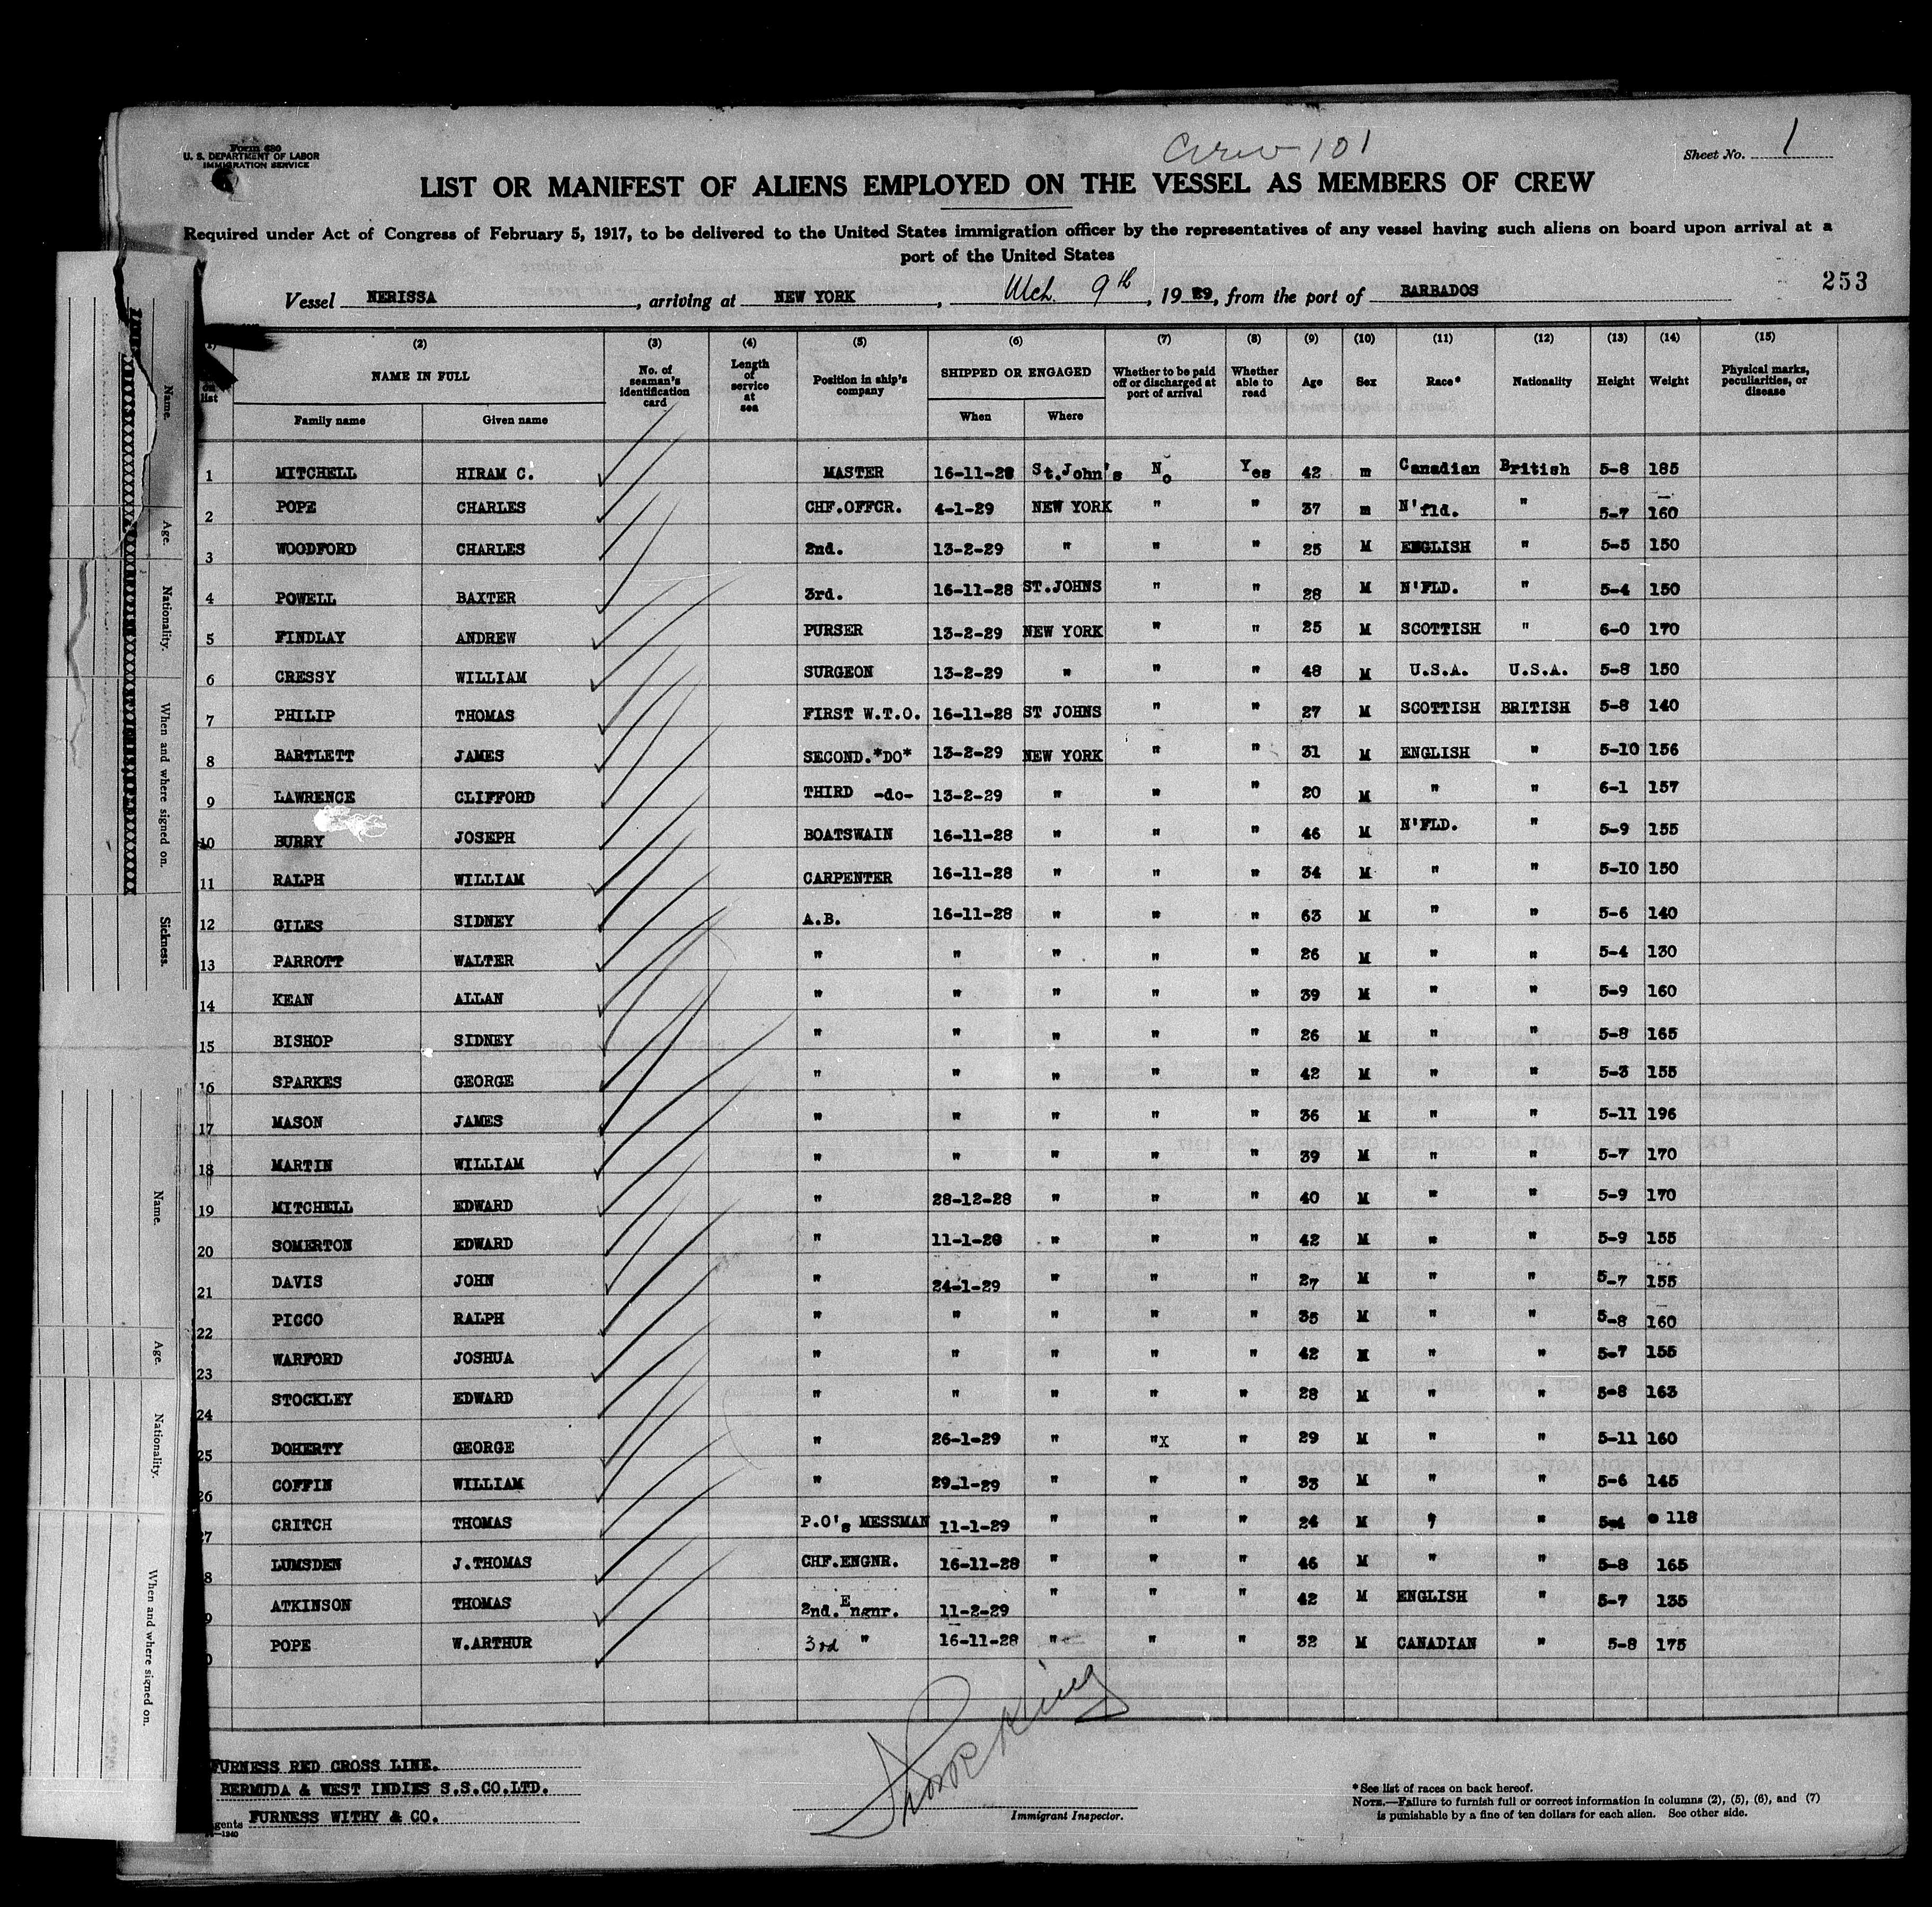 Crew 101
Form 680
U. S. DEPARTMENT OF LABOR
IMMIGRATION SERVICE
Sheet No. 1
LIST OR MANIFEST OF ALIENS EMPLOYED ON THE VESSEL AS MEMBERS OF CREW
Required under Act of Congress of February 5, 1917, to be delivered to the United States immigration officer by the representatives of any vessel having such aliens on board upon arrival at a
port of the United States
253
Vessel NERISSA, arriving at NEW YORK, Mch. 9th, 1929, from the port of BARBADOS
(2) (3) (4) (5) (6) (7) (8) (9) (10) (11) (12) (13) (14) (15)
on list NAME IN FULL Family name Given name No. of seaman's identification card Length of service at sea Position in ship's company SHIPPED OR ENGAGED When Where Whether to be paid off or discharged at port of arrival Whether able to read Age Sex Race* Nationality Height Weight Physical marks, peculiarities, or disease
1 MITCHELL HIRAM C. MASTER 16-11-28 St.John's No Yes 42 m Canadian British 5-8 185
2 POPE CHARLES CHF.OFFCR. 4-1-29 NEW YORK " " 37 m N'fld. " 5-7 160
3 WOODFORD CHARLES 2nd. 13-2-29 " " " 25 M ENGLISH " 5-5 150
4 POWELL BAXTER 3rd. 16-11-28 ST.JOHNS " " 28 M N'FLD. " 5-4 150
5 FINDLAY ANDREW PURSER 13-2-29 NEW YORK " " 25 M SCOTTISH " 6-0 170
6 CRESSY WILLIAM SURGEON 13-2-29 " " " 48 M U.S.A. U.S.A. 5-8 150
7 PHILIP THOMAS FIRST W.T.O. 16-11-28 ST JOHNS " " 27 M SCOTTISH BRITISH 5-8 140
8 BARTLETT JAMES SECOND.*DO* 13-2-29 NEW YORK " " 31 M ENGLISH " 5-10 156
9 LAWRENCE CLIFFORD THIRD -do- 13-2-29 " " " 20 M " " 6-1 157
10 BURRY JOSEPH BOATSWAIN 16-11-28 " " " 46 M N'FLD. " 5-9 155
11 RALPH WILLIAM CARPENTER 16-11-28 " " " 34 M " " 5-10 150
12 GILES SIDNEY A.B. 16-11-28 " " " 63 M " " 5-6 140
13 PARROTT WALTER " " " " " 26 M " " 5-4 130
14 KEAN ALLAN " " " " " 39 M " " 5-9 160
15 BISHOP SIDNEY " " " " " 26 M " " 5-8 165
16 SPARKES GEORGE " " " " " 42 M " " 5-3 155
17 MASON JAMES " " " " " 36 M " " 5-11 196
18 MARTIN WILLIAM " " " " " 39 M " " 5-7 170
19 MITCHELL EDWARD " 28-12-28 " " " 40 M " " 5-9 170
20 SOMERTON EDWARD " 11-1-29 " " " 42 M " " 5-9 155
21 DAVIS JOHN " 24-1-29 " " " 27 M " " 5-7 155
22 PICCO RALPH " " " " " 35 M " " 5-8 160
23 WARFORD JOSHUA " " " " " 42 M " " 5-7 155
24 STOCKLEY EDWARD " " " " " 28 M " " 5-8 163
25 DOHERTY GEORGE " 26-1-29 " "X " 29 M " " 5-11 160
26 COFFIN WILLIAM " 29-1-29 " " " 33 M " " 5-6 145
27 CRITCH THOMAS P.O's MESSMAN 11-1-29 " " " 24 M " " 5-4 118
8 LUMSDEN J.THOMAS CHF.ENGNR. 16-11-28 " " " 46 M " " 5-8 165
9 ATKINSON THOMAS 2nd.Engnr. 11-2-29 " " " 42 M ENGLISH " 5-7 135
0 POPE W.ARTHUR 3rd " 16-11-28 " " " 32 M CANADIAN " 5-8 175
FURNESS RED CROSS LINE.
BERMUDA & WEST INDIES S.S.CO.LTD.
gents FURNESS WITHY & CO.
Immigrant Inspector.
*See list of races on back hereof.
NOTE.—Failure to furnish full or correct information in columns (2), (5), (6), and (7)
is punishable by a fine of ten dollars for each alien. See other side.
Name.
Age.
Nationality.
When and where signed on.
Sickness.
Name.
Age.
Nationality.
When and where signed on.